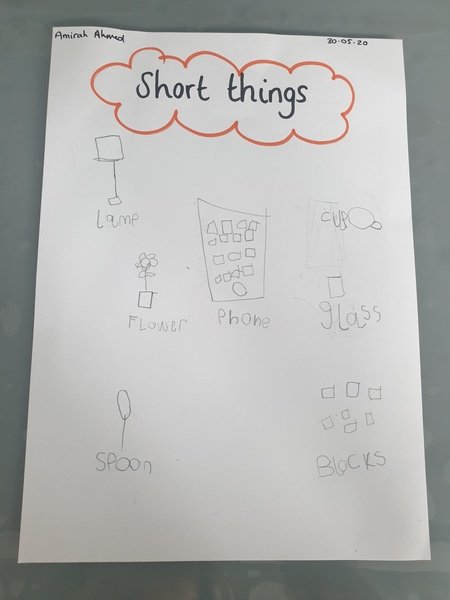 Amirah Ahmed
30.05.20
Short things
Lamp
CUP
Flower
Phone
glass
Spoon
Blocks